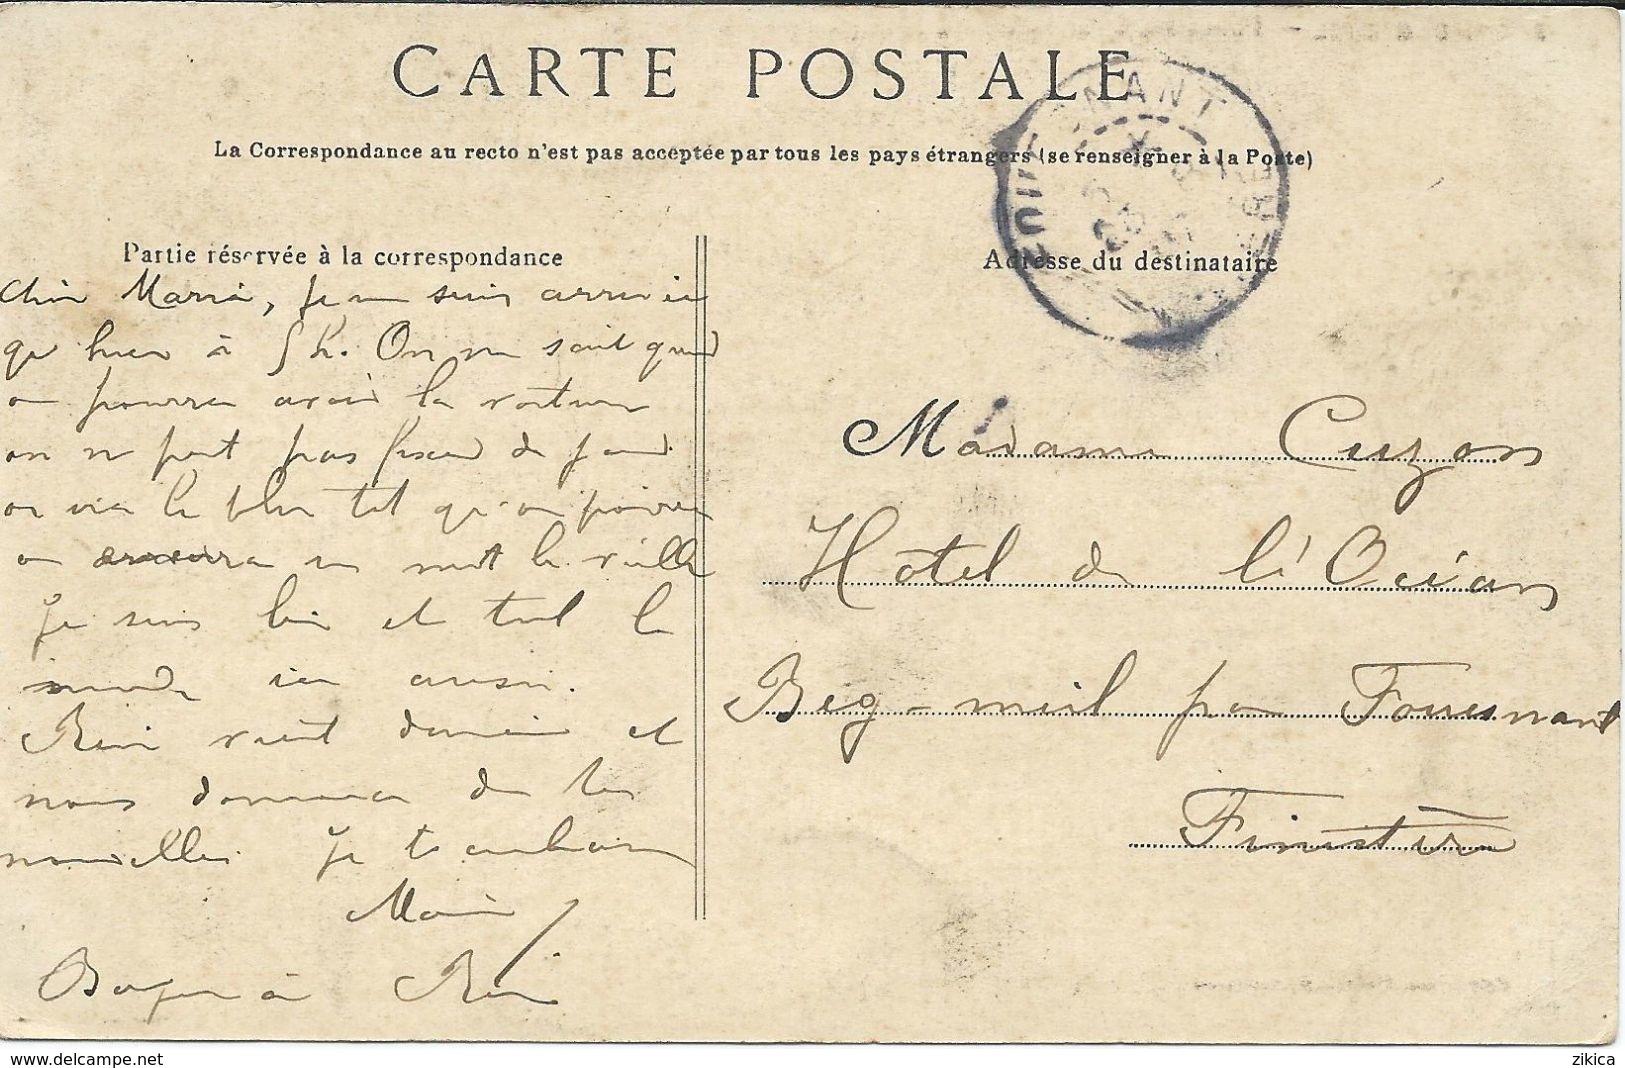 CARTE POSTALE
La Correspondance au recto n'est pas acceptée par tous les pays étrangers (se renseigner à la Poste)
Partie réservée à la correspondance
Adresse du destinataire
Maria, Je ne suis arrivée
qu'hier à 5 h. On ne sait quand
on pourra avoir la voiture
on ne peut pas fixer de jour
on ira le plus tôt qu'on pourra
on un mot la veille
Je suis bien et tout le
monde ici aussi.
vient demain et
nous donnera de tes
nouvelles Je t'embrasse
Marie
Madame Cuzon
Hôtel de l'Océan
Beg-meil par Fouesnant
Finistère
delcampe.net
zikica